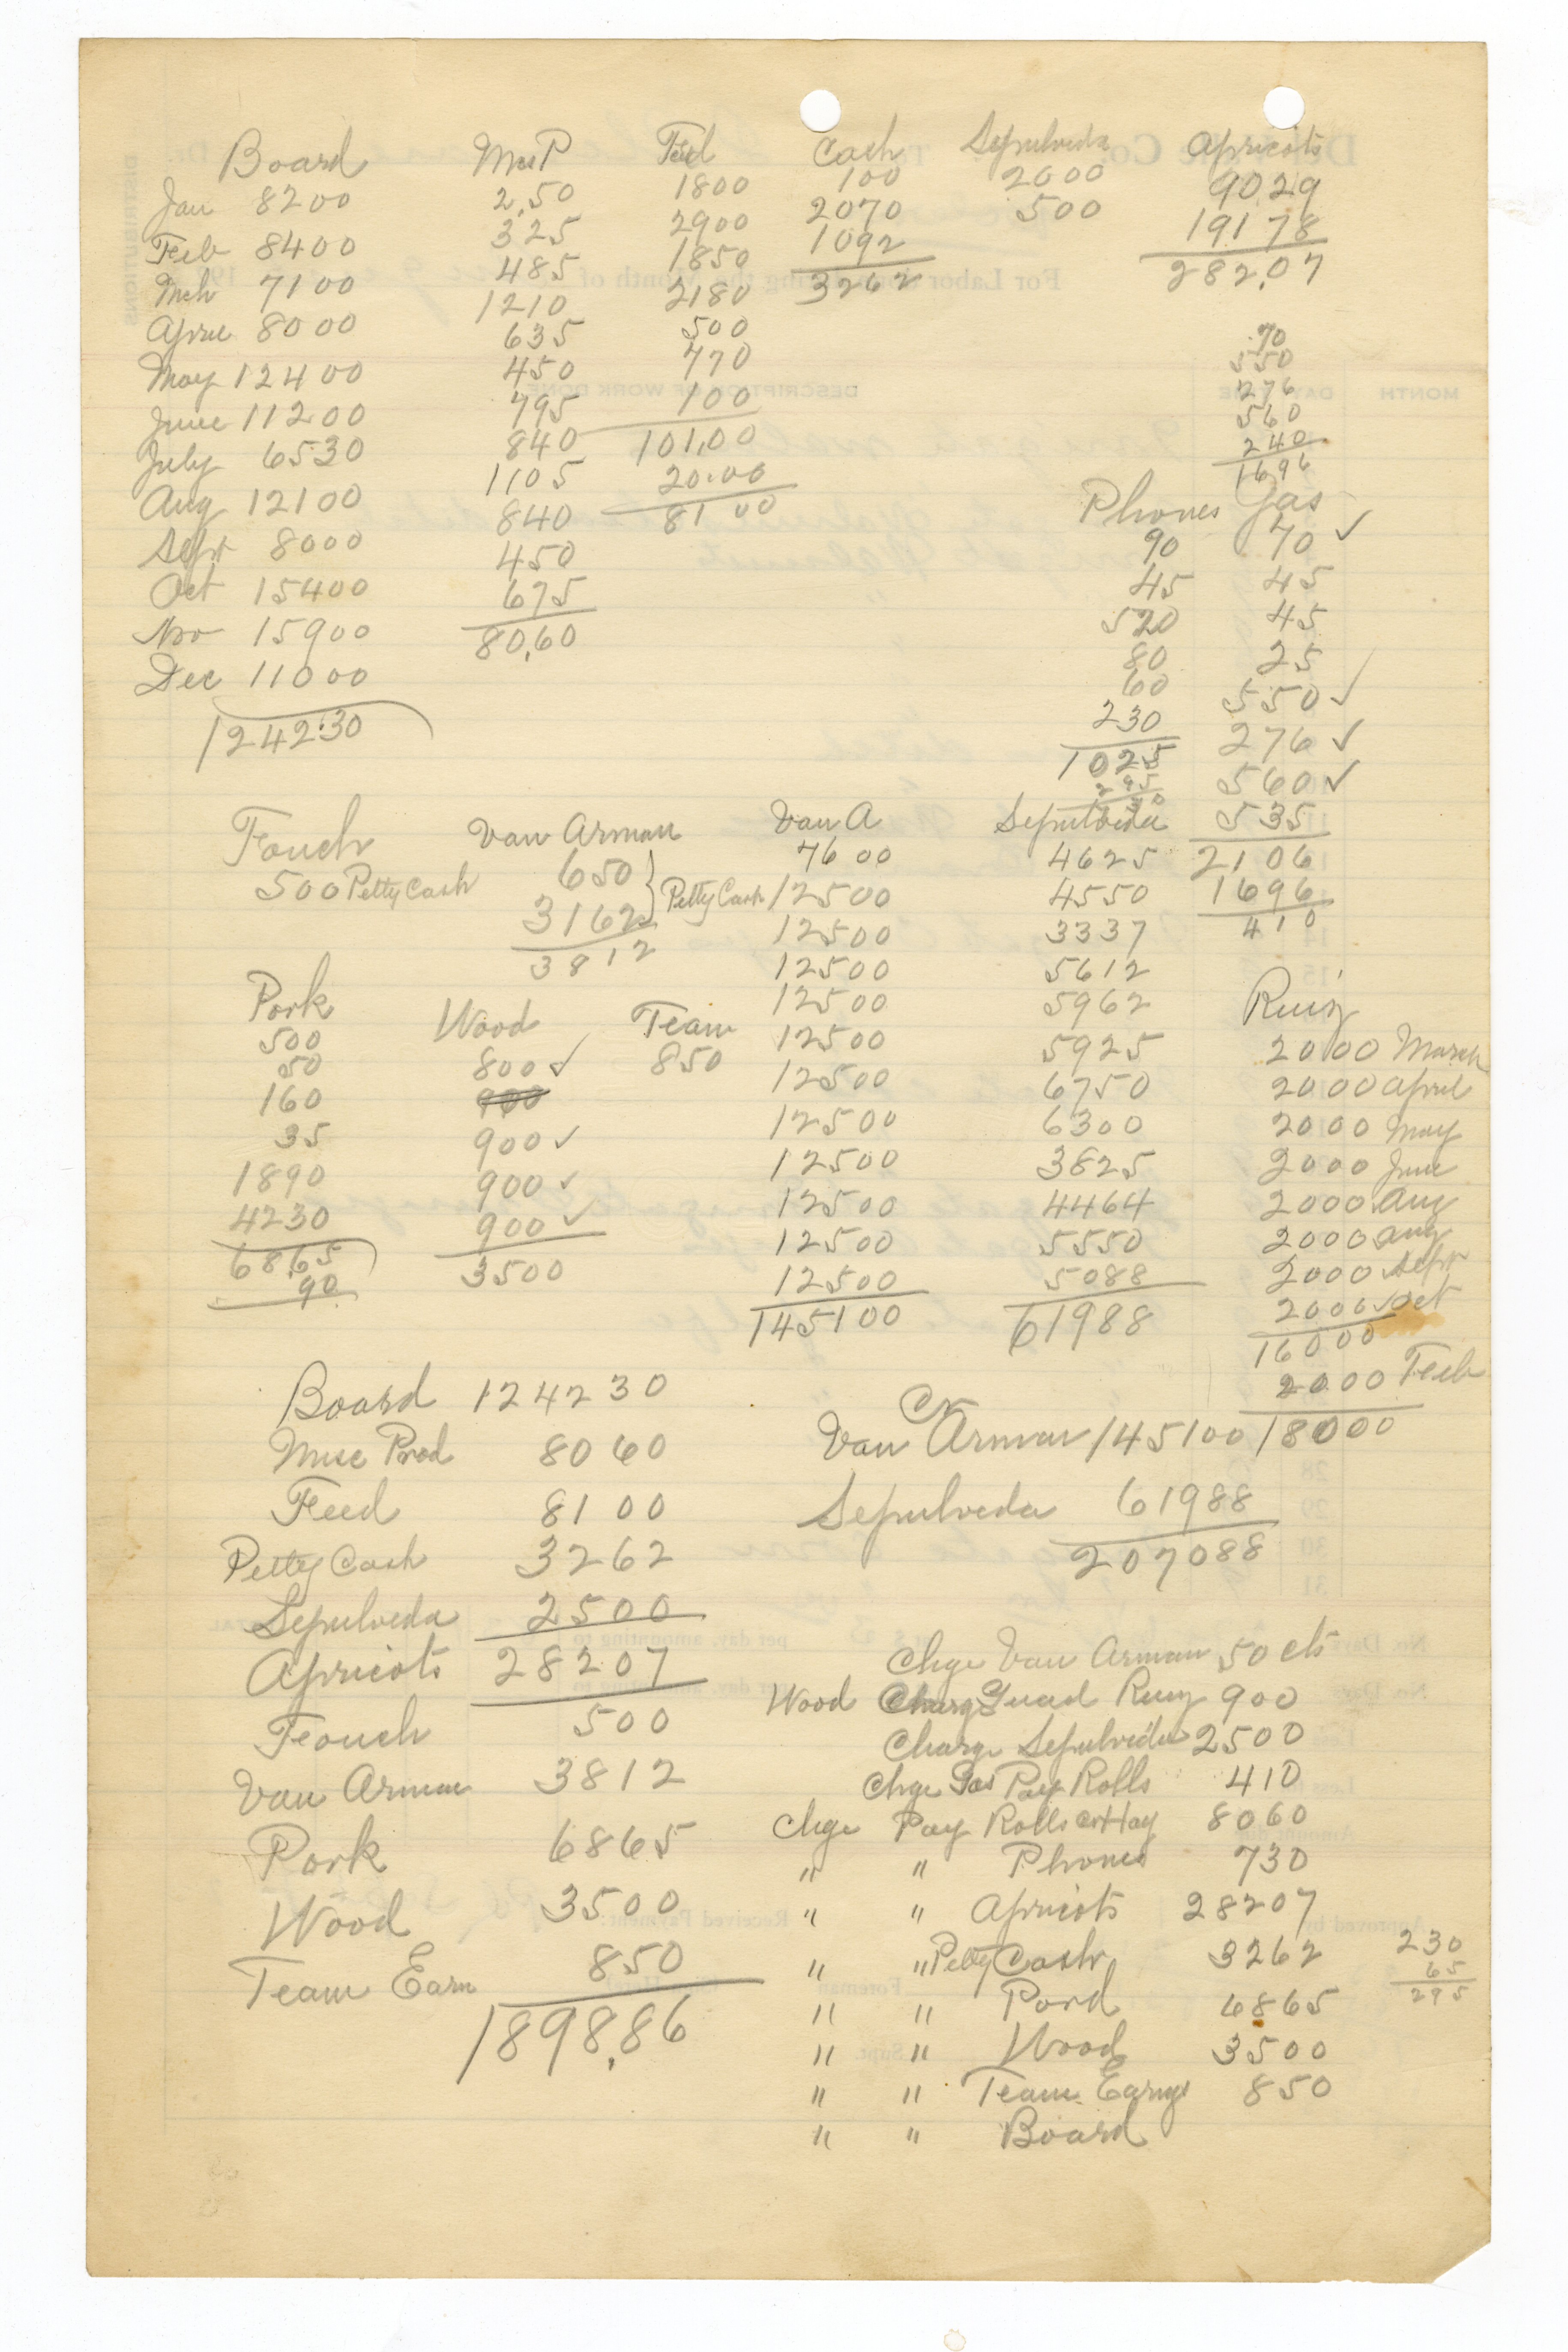 Board
Jan 8200
Feb 8400
Mch 7100
April 8000
May 12400
June 11200
July 6530
Aug 12100
Sept 8000
Oct 15400
Nov 15900
Dec 11000
1242.30
Mis P
2.50
325
485
1210
635
450
795
840
1105
840
450
675
80.60
Feed
1800
2900
1850
2180
500
770
100
101.00
20.00
81 00
Cash
100
2070
1092
3262
Sepulveda
2000
500
Apricots
9029
19178
282.07
.70
550
276
560
240
1696
Phones
90
45
520
80
60
230
1025
295
730
Gas
70 ✓
45
45
25
550 ✓
276 ✓
560 ✓
535
2106
1696
410
Fouch
500 Petty Cash
Van Arman
650 } Petty Cash
3162
3812
Van A
7600
12500
12500
12500
12500
12500
12500
12500
12500
12500
12500
12500
145100
Sepulveda
4625
4550
3337
5612
5962
5925
6750
6300
3825
4464
5550
5088
61988
Ruiz
2000 March
2000 April
2000 May
2000 June
2000 Aug
2000 Aug
2000 Sept
2000 Oct
16000
2000 Feb
18000
Pork
500
50
160
35
1890
4230
68.65
.90
Wood
800 ✓
900
900 ✓
900 ✓
900 ✓
3500
Team
850
Board 124230
Misc Prod 8060
Feed 8100
Petty Cash 3262
Sepulveda 2500
Apricots 28207
Fouch 500
Van Arman 3812
Pork 6865
Wood 3500
Team Earn 850
1898.86
Cr
Van Arman 145100
Sepulveda 61988
207088
Chge Van Arman 50 cts
Wood Charge Guad Ruiz 900
Charge Sepulveda 2500
Chge Gas Pay Rolls 410
Chge Pay Rolls Hay 8060
" " Phones 730
" " Apricots 28207
" " Petty Cash 3262
" " Pord 6865
" " Wood 3500
" " Team Earngs 850
" " Board
230
65
295